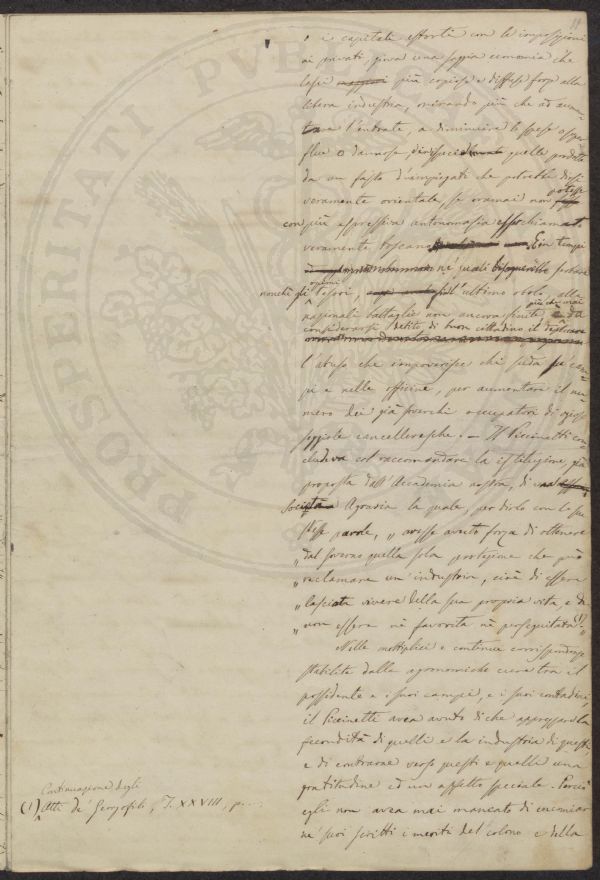 o i capitali estorti con le imposizioni
ai privati, quanto una saggia economia che
lasci maggiori più copiosi e diffusi forza alla
libera industria, mirando più che ad aumen-
tare l'entrate, a diminuire le spese super-
flue o dannose, quelle prodotte
da un fasto d'impiegati che potrebbe dirsi
veramente orientale, se oramai non potesse
con più espressiva autonomasia esser chiamato
veramente toscano. E in tempi
ne' quali bisognerebbe serbare
nonchè gli opimi tesori, l'ultimo obolo, alle
nazionali battaglie non ancora finite, più che mai è da
considerarsi debito di buon cittadino il
l'abuso che impoverisce chi suda ne' cam-
pi e nelle officine, per aumentare il nu-
mero dei già parecchi occupatori di oziose
seggiole cancelleresche. — Il Piccinetti con-
cludeva col raccomandare la istituzione già
proposta dall'Accademia nostra, di una
Società Agraria la quale, per dirlo con le sue
stesse parole, „ avesse avuto forza di ottenere
„ dal Governo quella sola protezione che può
„ reclamare un'industria, cioè di essere
„ lasciata vivere della sua propria vita, e di
„ non essere nè favorita nè perseguitata (1)."
Nelle molteplici e continue corrispondenze
stabilite dalle agronomiche cure tra il
possidente e i suoi campi, e i suoi contadini,
il Piccinetti avea avuto di che apprezzar la
fecondità di quelli e la industria di questi,
e di contrarne verso questi e quelli una
gratitudine ed un affetto speciale. Perciò
egli non avea mai mancato di encomiar
ne' suoi scritti i meriti del colono e della
Continuazione degli
(1) Atti de' Georgofili, T. XXVIII, p....
PROSPERITATI PVBL